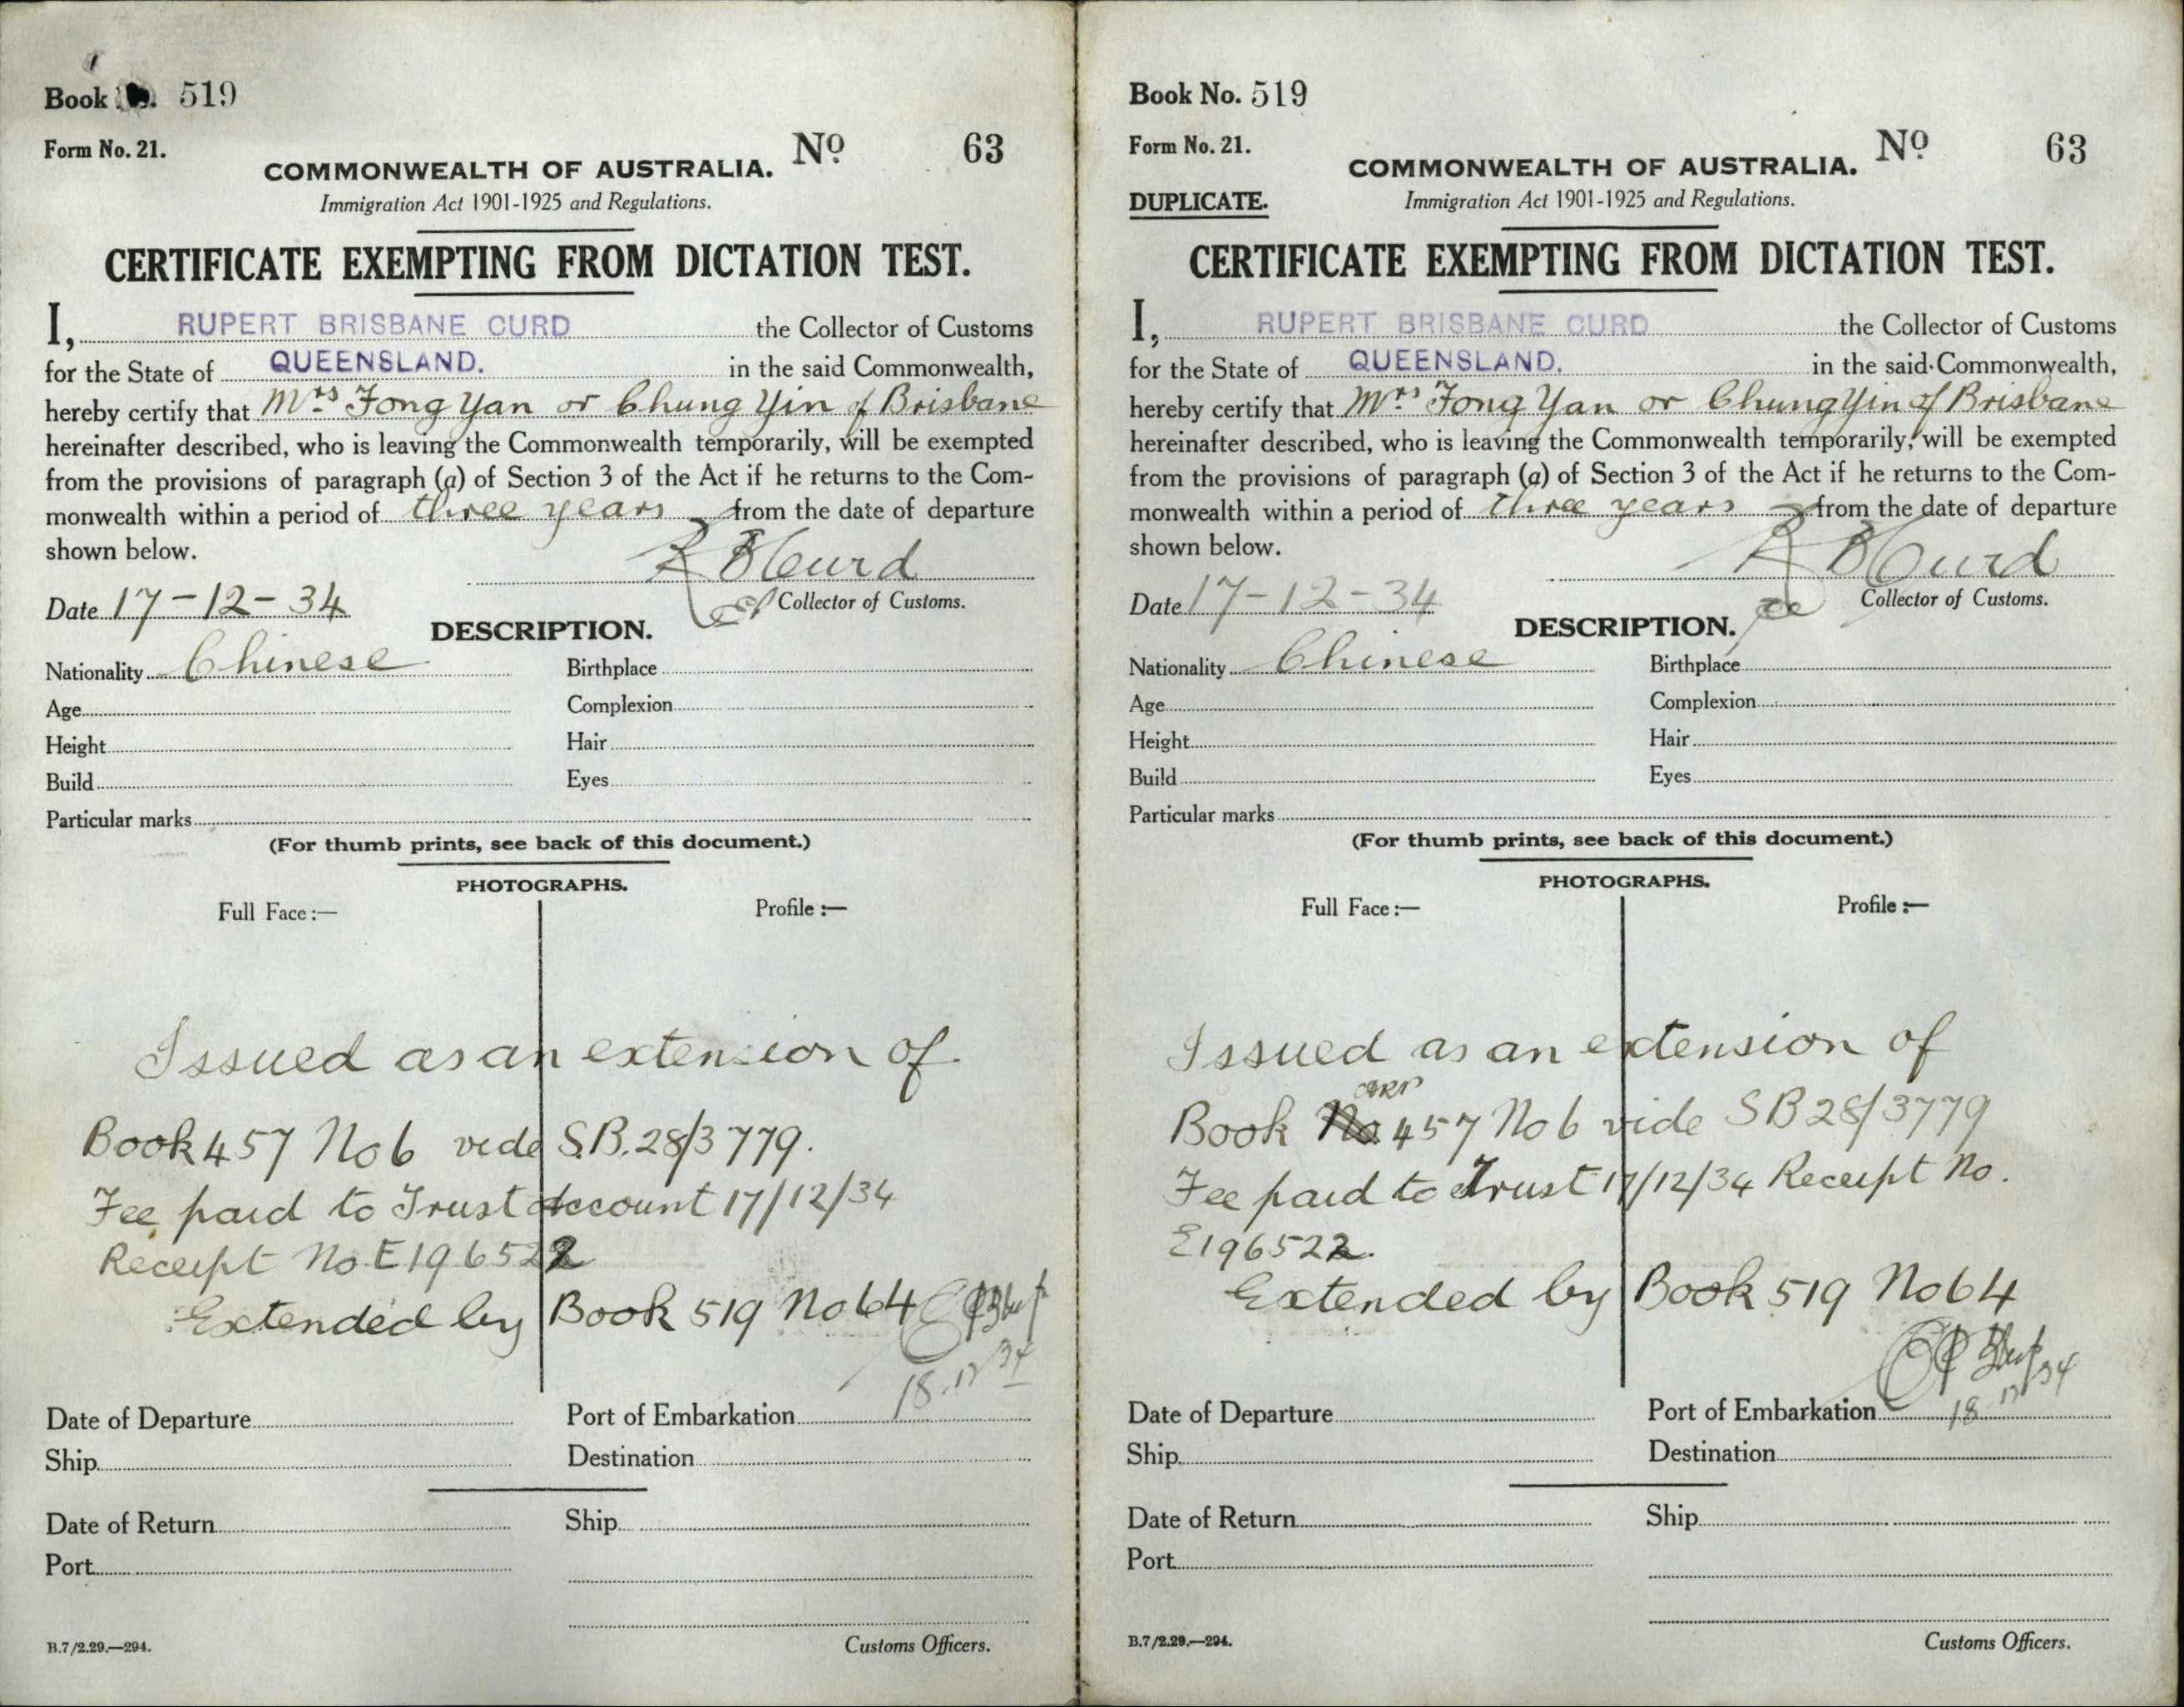 Book No. 519
Form No. 21.
No 63
COMMONWEALTH OF AUSTRALIA.
Immigration Act 1901-1925 and Regulations.
CERTIFICATE EXEMPTING FROM DICTATION TEST.
I, RUPERT BRISBANE CURD the Collector of Customs
for the State of QUEENSLAND. in the said Commonwealth,
hereby certify that Mrs Fong Yan or Chung Yin of Brisbane
hereinafter described, who is leaving the Commonwealth temporarily, will be exempted
from the provisions of paragraph (a) of Section 3 of the Act if he returns to the Com-
monwealth within a period of three years from the date of departure
shown below.
R B Curd
Date 17-12-34
Collector of Customs.
DESCRIPTION.
Nationality Chinese Birthplace
Age Complexion
Height Hair
Build Eyes
Particular marks
(For thumb prints, see back of this document.)
PHOTOGRAPHS.
Full Face :— Profile :—
Issued as an extension of
Book 457 No 6 vide S.B. 28/3779.
Fee paid to Trust Account 17/12/34
Receipt No E196522
Extended by Book 519 No 64
18.12.34
Date of Departure Port of Embarkation
Ship Destination
Date of Return Ship
Port
B.7/2.29.—294. Customs Officers.
Book No. 519
Form No. 21.
No 63
COMMONWEALTH OF AUSTRALIA.
DUPLICATE. Immigration Act 1901-1925 and Regulations.
CERTIFICATE EXEMPTING FROM DICTATION TEST.
I, RUPERT BRISBANE CURD the Collector of Customs
for the State of QUEENSLAND. in the said Commonwealth,
hereby certify that Mrs Fong Yan or Chung Yin of Brisbane
hereinafter described, who is leaving the Commonwealth temporarily, will be exempted
from the provisions of paragraph (a) of Section 3 of the Act if he returns to the Com-
monwealth within a period of three years from the date of departure
shown below.
R B Curd
Date 17-12-34
Collector of Customs.
DESCRIPTION.
Nationality Chinese Birthplace
Age Complexion
Height Hair
Build Eyes
Particular marks
(For thumb prints, see back of this document.)
PHOTOGRAPHS.
Full Face :— Profile :—
Issued as an extension of
Book No 457 No 6 vide SB 28/3779
Fee paid to Trust 17/12/34 Receipt No.
E196522.
Extended by Book 519 No 64
18 12 34
Date of Departure Port of Embarkation
Ship Destination
Date of Return Ship
Port
B.7/2.29.—294. Customs Officers.